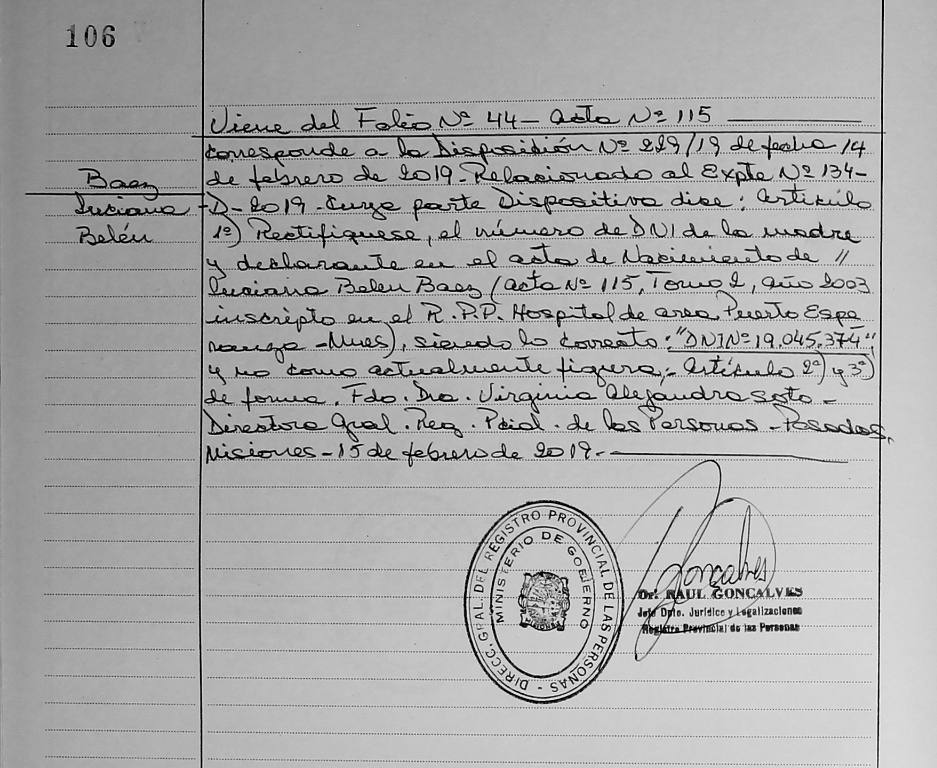 106
Viene del Folio Nº 44 - Acta Nº 115
Corresponde a la Disposición Nº 229/19 de fecha 14
de febrero de 2019. Relacionado al Expte Nº 134-
D-2019. Cuya parte Dispositiva dice: Artículo
1º) Rectifíquese, el número de DNI de la madre
y declarante en el acta de Nacimiento de //
Luciana Belen Baez (Acta Nº 115, Tomo 2, año 2003
inscripto en el R.P.P. Hospital de area, Puerto Espe
ranza - Mnes), siendo lo correcto: "DNI Nº 19.045.374"
y no como actualmente figura.- Artículo 2º) y 3º)
de forma. Fdo. Dra. Virginia Alejandra Soto -
Directora Gral. Reg. Pcial. de las Personas - Posadas,
Misiones - 15 de febrero de 2019.-
Baez
Luciana
Belén
DIRECC. GRAL. DEL REGISTRO PROVINCIAL DE LAS PERSONAS -
MINISTERIO DE GOBIERNO
MISIONES
Goncalves
Dr. RAUL GONCALVES
Jefe Dpto. Jurídico y Legalizaciones
Registro Provincial de las Personas